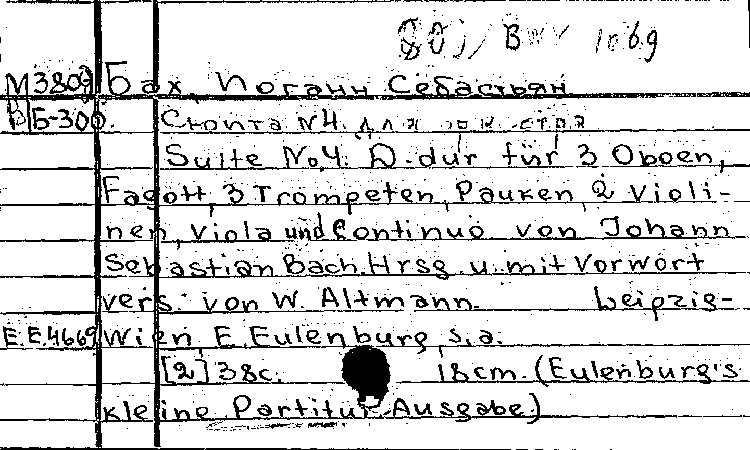 80j/ BWV 1069
М3809 Бах, Иоганн Себастьян
Б-300. Сюита N4 для орк-стра
Suite No4. D-dur für 3 Oboen,
Fagott, 3 Trompeten, Pauken, 2 Violi-
nen, Viola und Continuo von Johann
Sebastian Bach. Hrsg. u. mit Vorwort
vers. von W. Altmann. Leipzig-
E.E.4669 Wien, E. Eulenburg, s.a.
[2] 38c. 18cm. (Eulenburg's
kleine Partitur-Ausgabe)